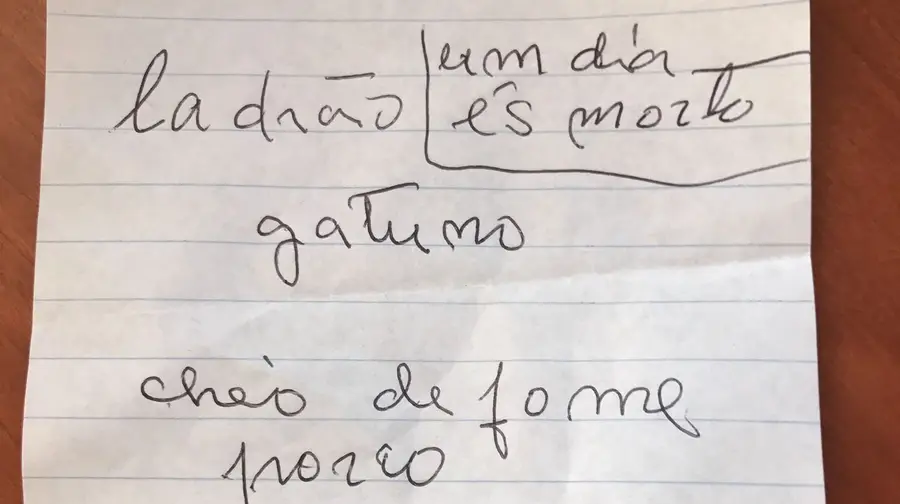 um dia
ladrão és morto
gatuno
cheio de fome
porco